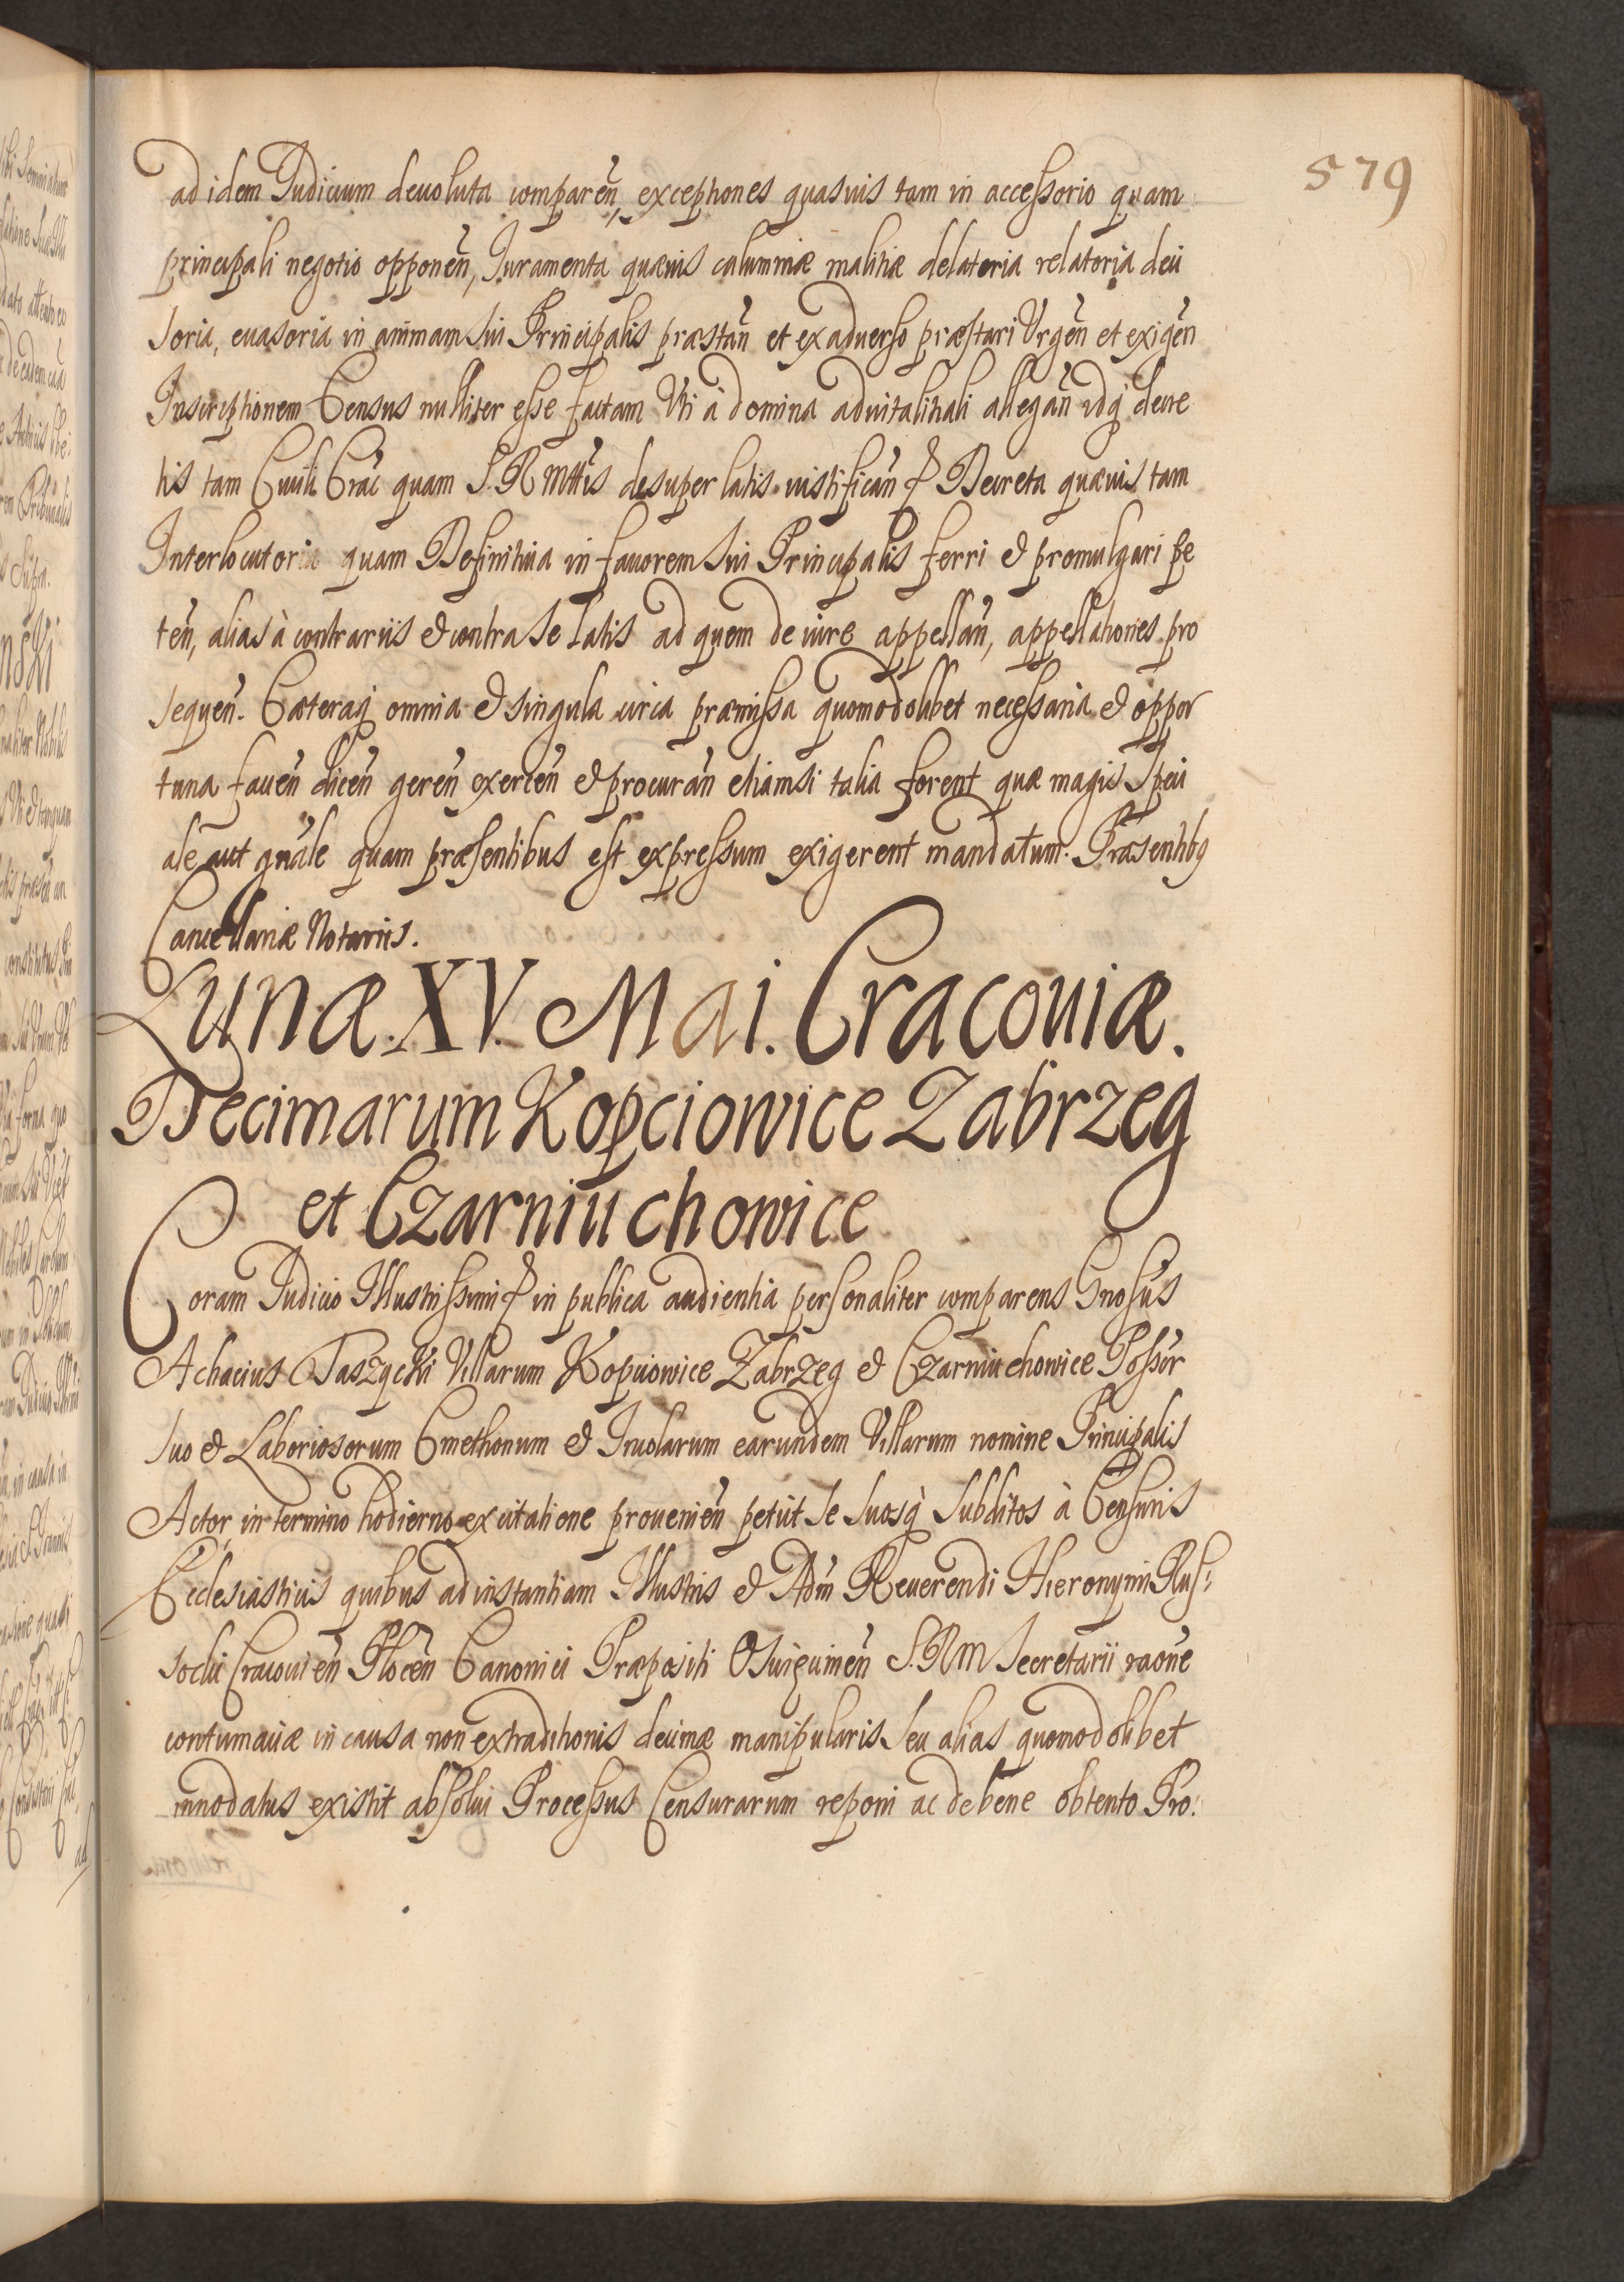 579
ad idem Judicium deuoluta comparen̄, exceptiones quasuis tam in accessorio quam
principali negotio opponen̄, Juramenta quæuis calumniæ malitiæ delatoria relatoria deci
soria, euasoria in animam sui Principalis præstan̄ et ex aduerso præstari Vrgen̄ et exigen̄
Inscriptionem Census nulliter esse factam Vti à domina aduitalitiali allegan̄ idq́ decre
tis tam Ciuili Crać quam S. R. Mttis desuper latis iustifican̄ Decreta quæuis tam
Interlocutoria quam Definitiua in fauorem sui Principalis ferri et promulgari pe
ten̄, alias à contrariis et contra se latis ad quem de iure appellan̄, appellationes pro
sequen̄. Cæteraq́ omnia et singula circa præmissa quomodolibet necessaria et oppor
tuna facien̄ dicen̄ geren̄ exercen̄ et procuran̄ etiamsi talia forent quæ magis speci
ale aut gn̄ale quam præsentibus est expressum exigerent mandatum. Præsentibus
Cancellariæ Notariis.
Lunæ. XV. Mai. Cracouiæ.
Decimarum Kopciowice Zabrzeg
et Czarniuchowice
Coram Judicio Illustrissimi in publica audientia personaliter comparens Gnosus
Achacius Taszycki Villarum Kopciowice Zabrzeg et Czarniuchowice Possor
suo et Laboriosorum Cmethonum et Incolarum earundem Villarum nomine Principalis
Actor in termino hodierno ex citatione prouenien̄ petiit se suosq́ subditos à Censuris
Ecclesiasticis quibus ad instantiam Illustris et Adm̄ Reuerendi Hieronymi Rus:
socki Cracouien̄ Plocen̄ Canonici Præpositi Oswięcimen̄ S. R. M Secretarii raōne
contumaciæ in causa non extraditionis decimæ manipularis seu alias quomodolibet
innodatus existit absolui Processus Censurarum reponi ac de bene obtento Pro: